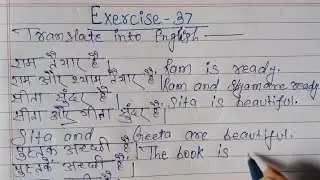 Exercise-37
Translate into English—
राम तैयार है। Ram is ready.
राम और श्याम तैयार हैं। Ram and Shyam are ready.
सीता सुंदर है। Sita is beautiful.
सीता और गीता सुंदर हैं।
Sita and Geeta are beautiful.
पुस्तक अच्छी है। The book is
पुस्तकें अच्छी हैं।